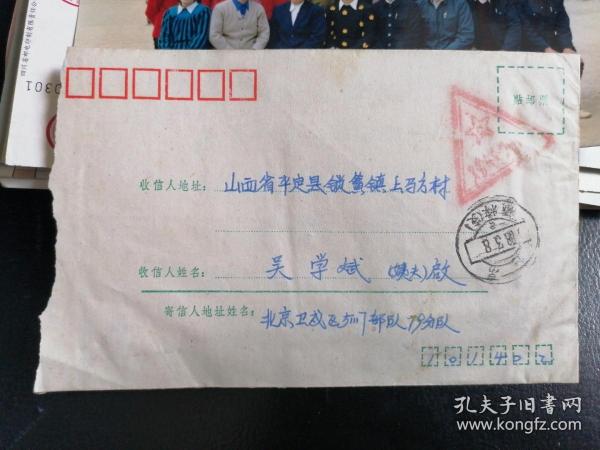 0301
贴邮票
收信人地址： 山西省平定县锁簧镇上马方村
88.3.8
收信人姓名： 吴学斌（姨夫）启
寄信人地址姓名： 北京卫戍区51117部队79分队
101402
孔夫子旧书网
www.kongfz.com